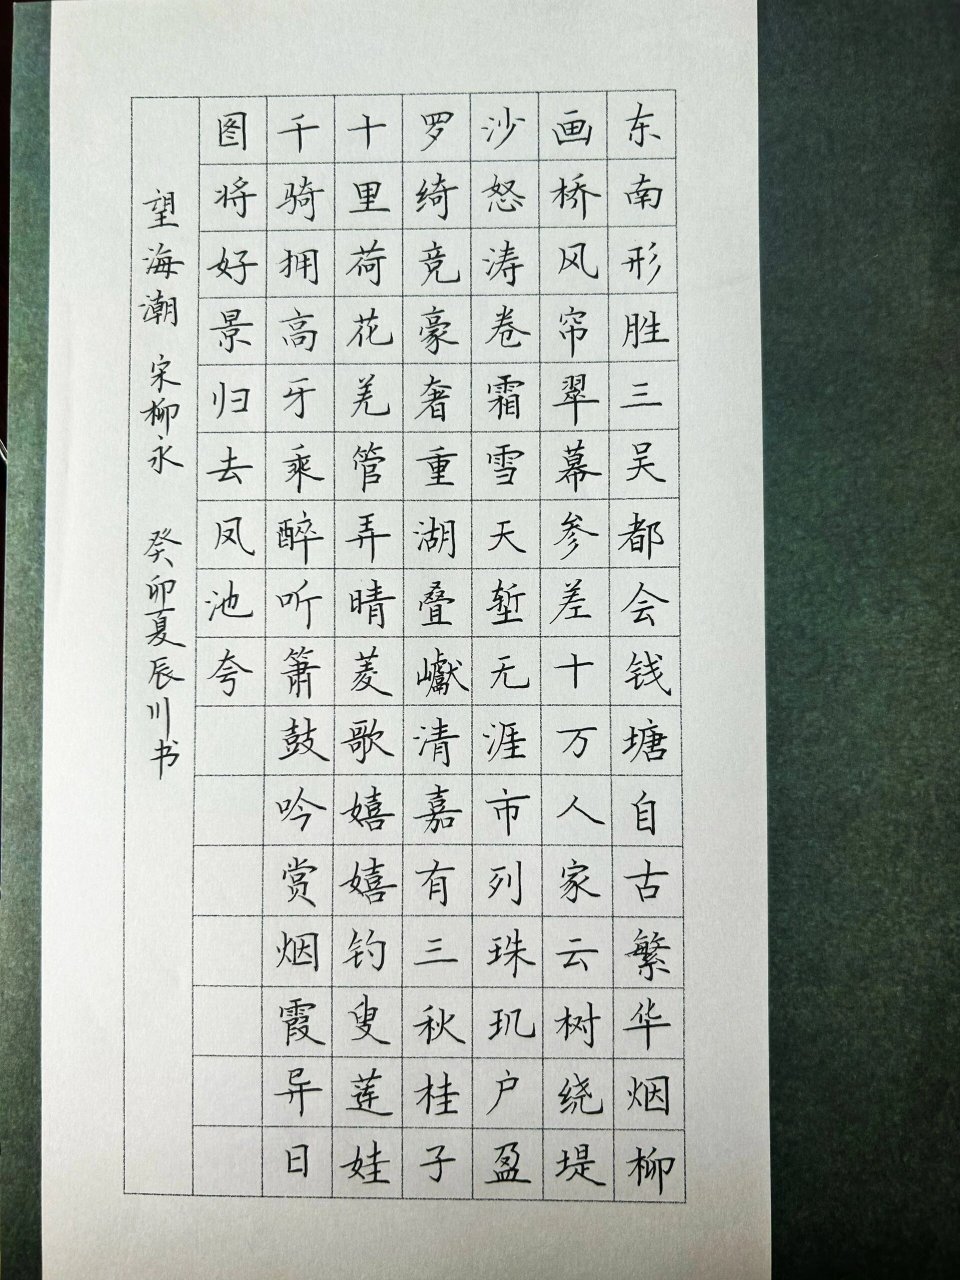 东南形胜三吴都会钱塘自古繁华烟柳
画桥风帘翠幕参差十万人家云树绕堤
沙怒涛卷霜雪天堑无涯市列珠玑户盈
罗绮竞豪奢重湖叠巘清嘉有三秋桂子
十里荷花羌管弄晴菱歌嬉嬉钓叟莲娃
千骑拥高牙乘醉听箫鼓吟赏烟霞异日
图将好景归去凤池夸
望海潮 宋柳永 癸卯夏辰川书